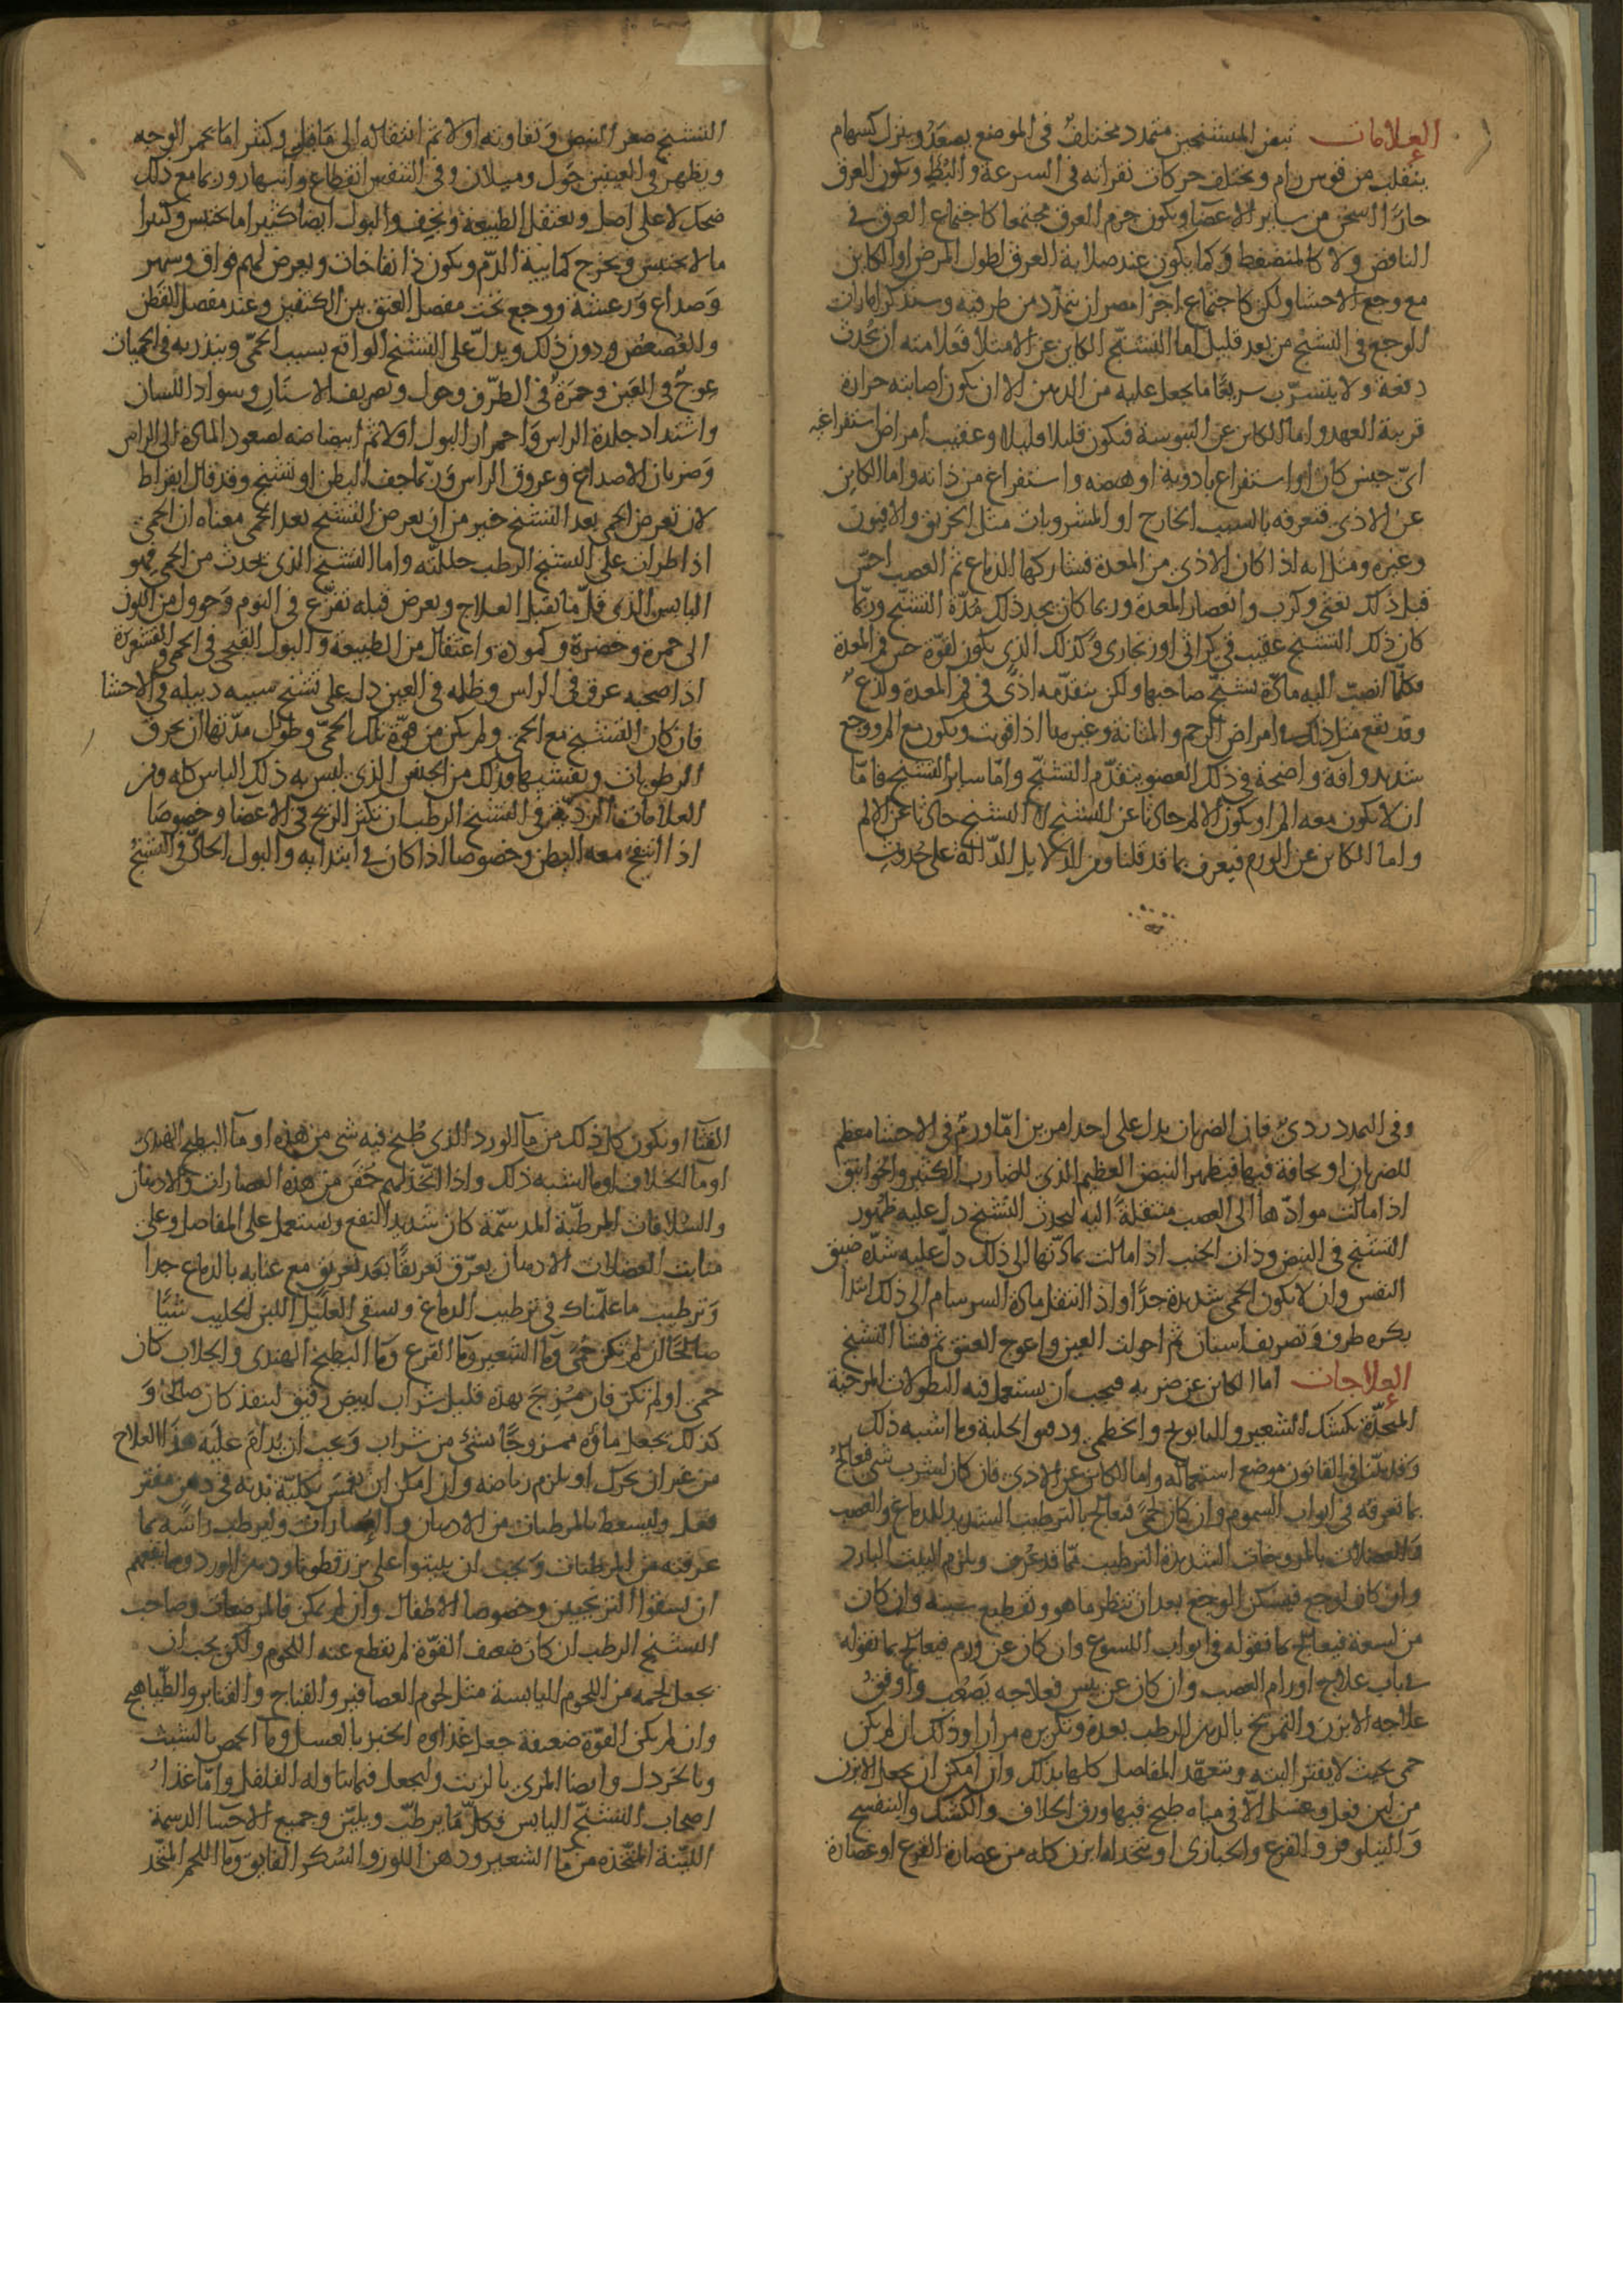 العلامات نبض المتشنجين متمدد مختلف في الموضع يصعد وينزل كسهام
ينفلت من قوس رام ويختلف حركات نقراته في السرعة والبطؤ ويكون العرق
حارا اسخن من ساير الاعضا ويكون جرم العرق مجتمعا كاجتماع العرق في
النافض ولا كالمنضغط وكما يكون عند صلابة العرق لطول المرض او الكاين
مع وجع الاحشا ولكن كاجتماع اجزا مصران تمدد من طرفيه وسنذكر امارات
الوجع في التشنج من بعد قليل اما التشنج الكاين عن الامتلا فعلامته ان يحدث
دفعة ولا يتشرب سريعا ما يجعل عليه من الدهن الا ان يكون اصابته حرارة
قريبة العهد واما الكاين عن اليبوسة فيكون قليلا قليلا وعقيب امراض استفراغية
اي جنس كان او استفراغ بادوية او هيضة واستفراغ من ذاته واما الكاين
عن الاذى فتعرفه بالسبب الخارج او المشروبات مثل الخربق والافيون
وغيره ومثل انه اذا كان الاذى من المعدة فشاركها الدماغ ثم العصب احس
قبل ذلك بغثي وكرب وانعصار المعدة وربما كان يجد ذلك مدة التشنج وربما
كان ذلك التشنج عقيب قي كراثي او زنجاري وكذلك الذي يكون لقوة حس فم المعدة
فكلما انصبت اليه مادة تشنج صاحبها ولكن يتقدمه اذى في فم المعدة ولذع
وقد يقع مثل ذلك في امراض الرحم والمثانة وغيرها اذا قويت ويكون مع الم ووجع
شديد وآفة واضحة في ذلك العضو يتقدم التشنج واما ساير التشنج فاما
ان لا يكون معه الم او يكون الالم حادثا عن التشنج لا التشنج حادثا عن الالم
واما الكاين عن الورم فيعرف بما قد قلنا ومن الدلايل الدالة على حدوث
التشنج صغر النبض وتفاوته اولا ثم انتقاله الى ما قيل وكثيرا ما يحمر الوجه
ويظهر في العينين حول وميلان وفي التنفس انقطاع وانبهار وربما مع ذلك
ضحك لا على اصل وتعتقل الطبيعة وتجف والبول ايضا كثيرا ما يحتبس وكثيرا
ما لا يحتبس ويخرج كمايية الدم ويكون ذا نفاخات ويعرض لهم فواق وسهر
وصداع ورعشة ووجع تحت مفصل العنق بين الكتفين وعند مفصل القطن
والعصعص ودون ذلك ويدل على التشنج الواقع بسبب الحمى وينذر به في الحميات
عوج في العين وحمرة في الطرف وحول وتصريف الاسنان وسواد اللسان
واشتداد جلدة الراس واحمرار البول اولا ثم ابيضاضه لصعود المادة الى الراس
وضربان الاصداغ وعروق الراس وربما جف البطن او تشنج وقد قال ابقراط
لان تعرض الحمى بعد التشنج خير من ان يعرض التشنج بعد الحمى معناه ان الحمى
اذا طرات على التشنج الرطب حللته واما التشنج الذي يحدث من الحمى فهو
اليابس الذي قل ما يقبل العلاج ويعرض قبله تفزع في النوم وحوول من اللون
الى حمرة وخضرة وكمودة واعتقال من الطبيعة والبول القيحي في الحمى والقشعريرة
اذا صحبه عرق في الراس وظلمة في العين دل على تشنج سببه دبيلة في الاحشا
فان كان التشنج مع الحمى ولم يكن من قوة تلك الحمى وطول مدتها ان يحرق
الرطوبات وتفشيها فذلك من الجنس الذي ليس به ذلك الباس كله ومن
العلامات الردية في التشنج الرطب ان تكثر الريح في الاعضا وخصوصا
اذا انتفخ معه البطن وخصوصا اذا كان في ابتدايه والبول الحاد في التشنج
وفي التمدد ردي فان الضربان يدل على احد امرين اما ورم في الاحشا معظم
للضربان او نحافة فيها فيظهر النبض العظيم الذي للضارب الكثير والخوانيق
اذا مالت موادها الى العصب منتقلة اليه ليحدث التشنج دل عليه ظهور
التشنج في النبض وذات الجنب اذا مالت مادتها الى ذلك دل عليه شدة ضيق
النفس وان لا يكون الحمى شديدة جدا واذا انتقل مادة السرسام الى ذلك ابتدا
بكثرة طرف وتصريف اسنان ثم احولت العين واعوج العنق ثم فشا التشنج
العلاجات اما الكاين عن ضربه فيجب ان يستعمل فيه النطولات المرخية
المتخذة بكشك الشعير والبابونج والخطمي ودهن الحلبة وما اشبه ذلك
وقد بينا في القانون موضع استعماله واما الكاين عن الاذى فان كان لشرب شي فعالج
بما تعرفه في ابواب السموم وان كان لحمى فيعالج بالترطيب الشديد للدماغ والعصب
والعضلات بالمروخات الشديدة الترطيب مما قد عرف ويلزم البيت البارد
وان كان لوجع فيسكن الوجع بعد ان تنظر ما هو وتقطيع سببه وان كان
من لسعة فيعالج بما نقوله في ابواب اللسوع وان كان عن ورم فيعالج بما نقوله
في باب علاج اورام العصب وان كان عن يبس فعلاجه يصعب واوفق
علاجه الابزن والتمريخ بالدهن المرطب بعده وتكريره مرارا وذلك ان لم يكن
حمى بحيث لا يفتر البتة وتتعهد المفاصل كلها بذلك وان امكن ان يجعل الابزن
من لبن فعل وعسل الا في مياه طبخ فيها ورق الخلاف والكشك والبنفسج
والنيلوفر والقرع والخبازى او يتخذ له ابزن كله من عصارة القرع او عصارة
القثا او يكون كل ذلك من ما الورد الذي طبخ فيه شي من هذه او ما البطيخ الهندي
او ما الخلاف او ما اشبه ذلك واذا اتخذ لهم حقن من هذه العصارات والادهان
والسلاقات المرطبة المدسمة كان شديد النفع ويستعمل على المفاصل وعلى
منابت العضلات الادهان يعرق تعريقا بعد تعريق مع عناية بالدماغ جدا
وترطيب ما علمناك في ترطيب الدماغ ويسقى العليل اللبن الحليب شيا
صالحا ان لم يكن حمى وما الشعير وما القرع وما البطيخ الهندي والجلاب كان
حمى او لم تكن فان مزج بهذه قليل شراب ابيض رقيق لينفذ كان صالحا و
كذلك يجعل ماؤه ممزوجا بشي من شراب ويجب ان يدام عليه هذا العلاج
من غير ان يحرك او يلزم رياضة وان امكن ان يغمس بكلية بدنه في دهن مفتر
فعل وليسعط بالمرطبات من الادهان والعصارات وليرطب راسه بما
عرفته من المرطبات ويجب ان يبيتوا على بزرقطونا ودهن الورد وما ينفعهم
ان يسقوا الترنجبين وخصوصا الاطفال وان لم يمكن فالمرضعات وصاحب
التشنج الرطب ان كان ضعيف القوة لم تقطع عنه اللحوم ولكن يجب ان
يجعل لحمه من اللحوم اليابسة مثل لحوم العصافير والقباج والقنابر والطياهيج
وان لم يكن القوة ضعيفة جعل غذاوه الخبز بالعسل وما الحمص بالشبث
وبالخردل وايضا المري بالزيت وليجعل فيما يتناوله الفلفل واما غذا
اصحاب التشنج اليابس فكل ما يرطب ويلين وجميع الاحسا الدسمة
اللينة المتخذة من ما الشعير ودهن اللوز والسكر الفايق وما اللحم المتخذ